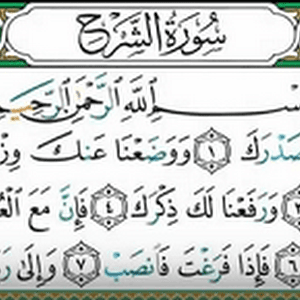 سُورَةُ الشَّرْحِ
بِسْمِ ٱللَّهِ ٱلرَّحْمَٰنِ ٱلرَّحِيمِ
صَدْرَكَ ١ وَوَضَعْنَا عَنكَ وِزْ
٣ وَرَفَعْنَا لَكَ ذِكْرَكَ ٤ فَإِنَّ مَعَ ٱلْعُ
٦ فَإِذَا فَرَغْتَ فَٱنصَبْ ٧ وَإِلَىٰ رَ